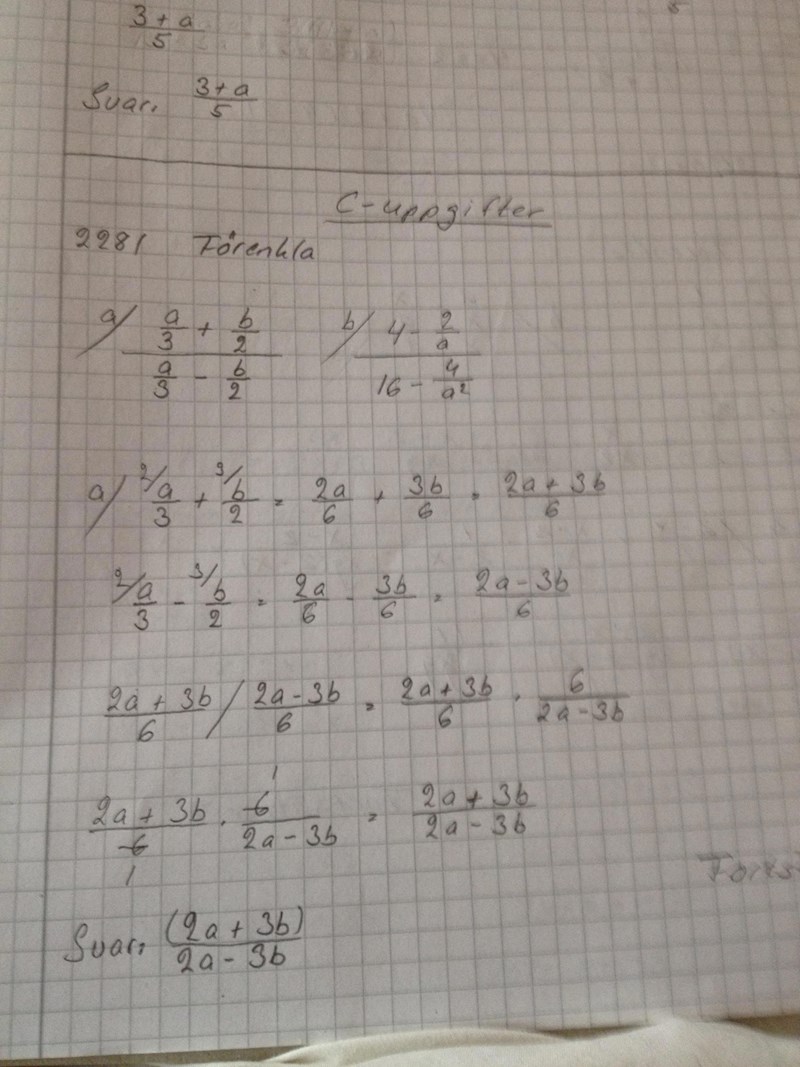 3 + a
5
Svar: 3 + a
5
C-uppgifter
2281 Förenkla
a/ a/3 + b/2 b/ 4 - 2/a
a/3 - b/2 16 - 4/a²
a/ 2/a/3 + 3/b/2 = 2a/6 + 3b/6 = 2a + 3b/6
2/a/3 - 3/b/2 = 2a/6 - 3b/6 = 2a - 3b/6
2a + 3b/6 / 2a - 3b/6 = 2a + 3b/6 · 6/2a - 3b
1
2a + 3b/6 · 6/2a - 3b = 2a + 3b/2a - 3b
1
Svar: (2a + 3b)
2a - 3b